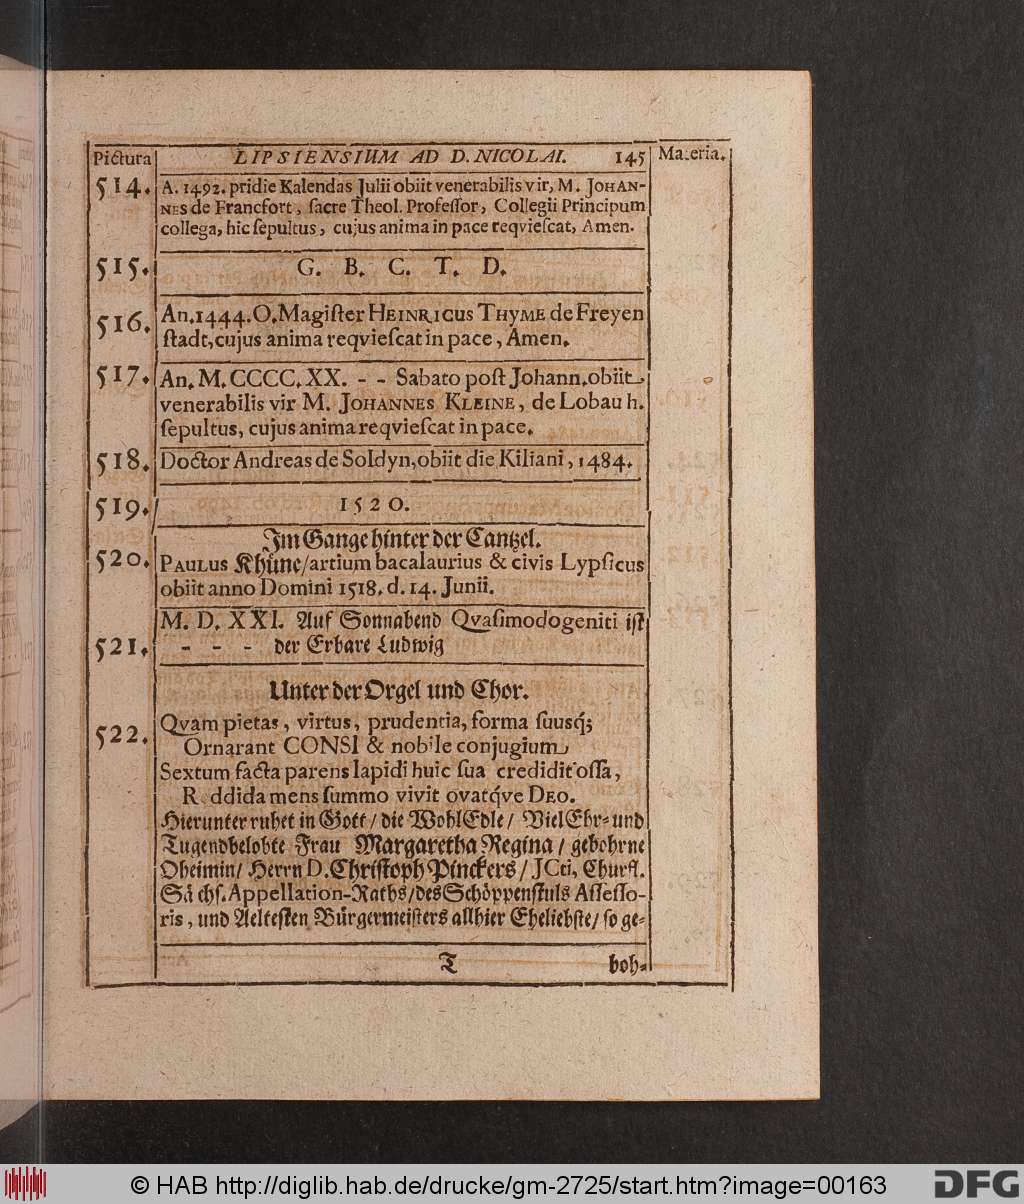 Pictura LIPSIENSIUM AD D. NICOLAI. 145 Materia.
514. A. 1492. pridie Kalendas Julii obiit venerabilis vir, M. JOHAN-
NES de Francfort, sacre Theol. Professor, Collegii Principum
collega, hic sepultus, cujus anima in pace reqviescat, Amen.
515. G. B. C. T. D.
516. An. 1444. O. Magister HEINRICUS THYME de Freyen
stadt, cujus anima reqviescat in pace, Amen.
517. An. M. CCCC. XX. - - Sabato post Johann. obiit
venerabilis vir M. JOHANNES KLEINE, de Lobau h.
sepultus, cujus anima reqviescat in pace.
518. Doctor Andreas de Soldyn, obiit die Kiliani, 1484.
519. 1520.
Im Gange hinter der Cantzel.
520. PAULUS Khüne/ artium bacalaurius & civis Lypsicus
obiit anno Domini 1518. d. 14. Junii.
M. D. XXI. Auf Sonnabend Qvasimodogeniti ist
521. - - - der Erbare Ludwig
Unter der Orgel und Chor.
522. Qvam pietas, virtus, prudentia, forma suusq́;
Ornarant CONSI & nobile conjugium
Sextum facta parens lapidi huic sua credidit ossa,
Reddida mens summo vivit ovatq́ve DEO.
Hierunter ruhet in Gott / die WohlEdle / VielEhr- und
Tugendbelobte Frau Margaretha Regina / gebohrne
Oheimin / Herrn D. Christoph Pinckers / JCti, Churfl.
Sächs. Appellation-Raths / des Schöppenstuls Assesso-
ris, und Aeltesten Bürgermeisters allhier Eheliebste / so ge-
T boh-
© HAB http://diglib.hab.de/drucke/gm-2725/start.htm?image=00163 DFG